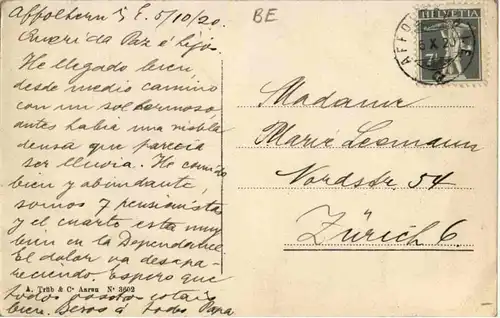 Affoltern § E. 5/10/20.
Querida Paz é hijos.
He llegado bien,
desde medio camino
con un sol hermoso
antes habia una niebla
densa que parecia
ser lluvia. He comido
bien y abundante,
somos 7 pensionista
y el cuarto esta muy
bien en la Dependance.
El dolor va desapa-
reciendo. Espero que
todos vosotros estais
bien. Besos á todos Papa
A. Trüb & Cⁱᵉ Aarau Nº 3602
BE
HELVETIA
7½
AFFO
X.2
Madame
Marie Lesmann
Nordstr. 54
Zürich 6.